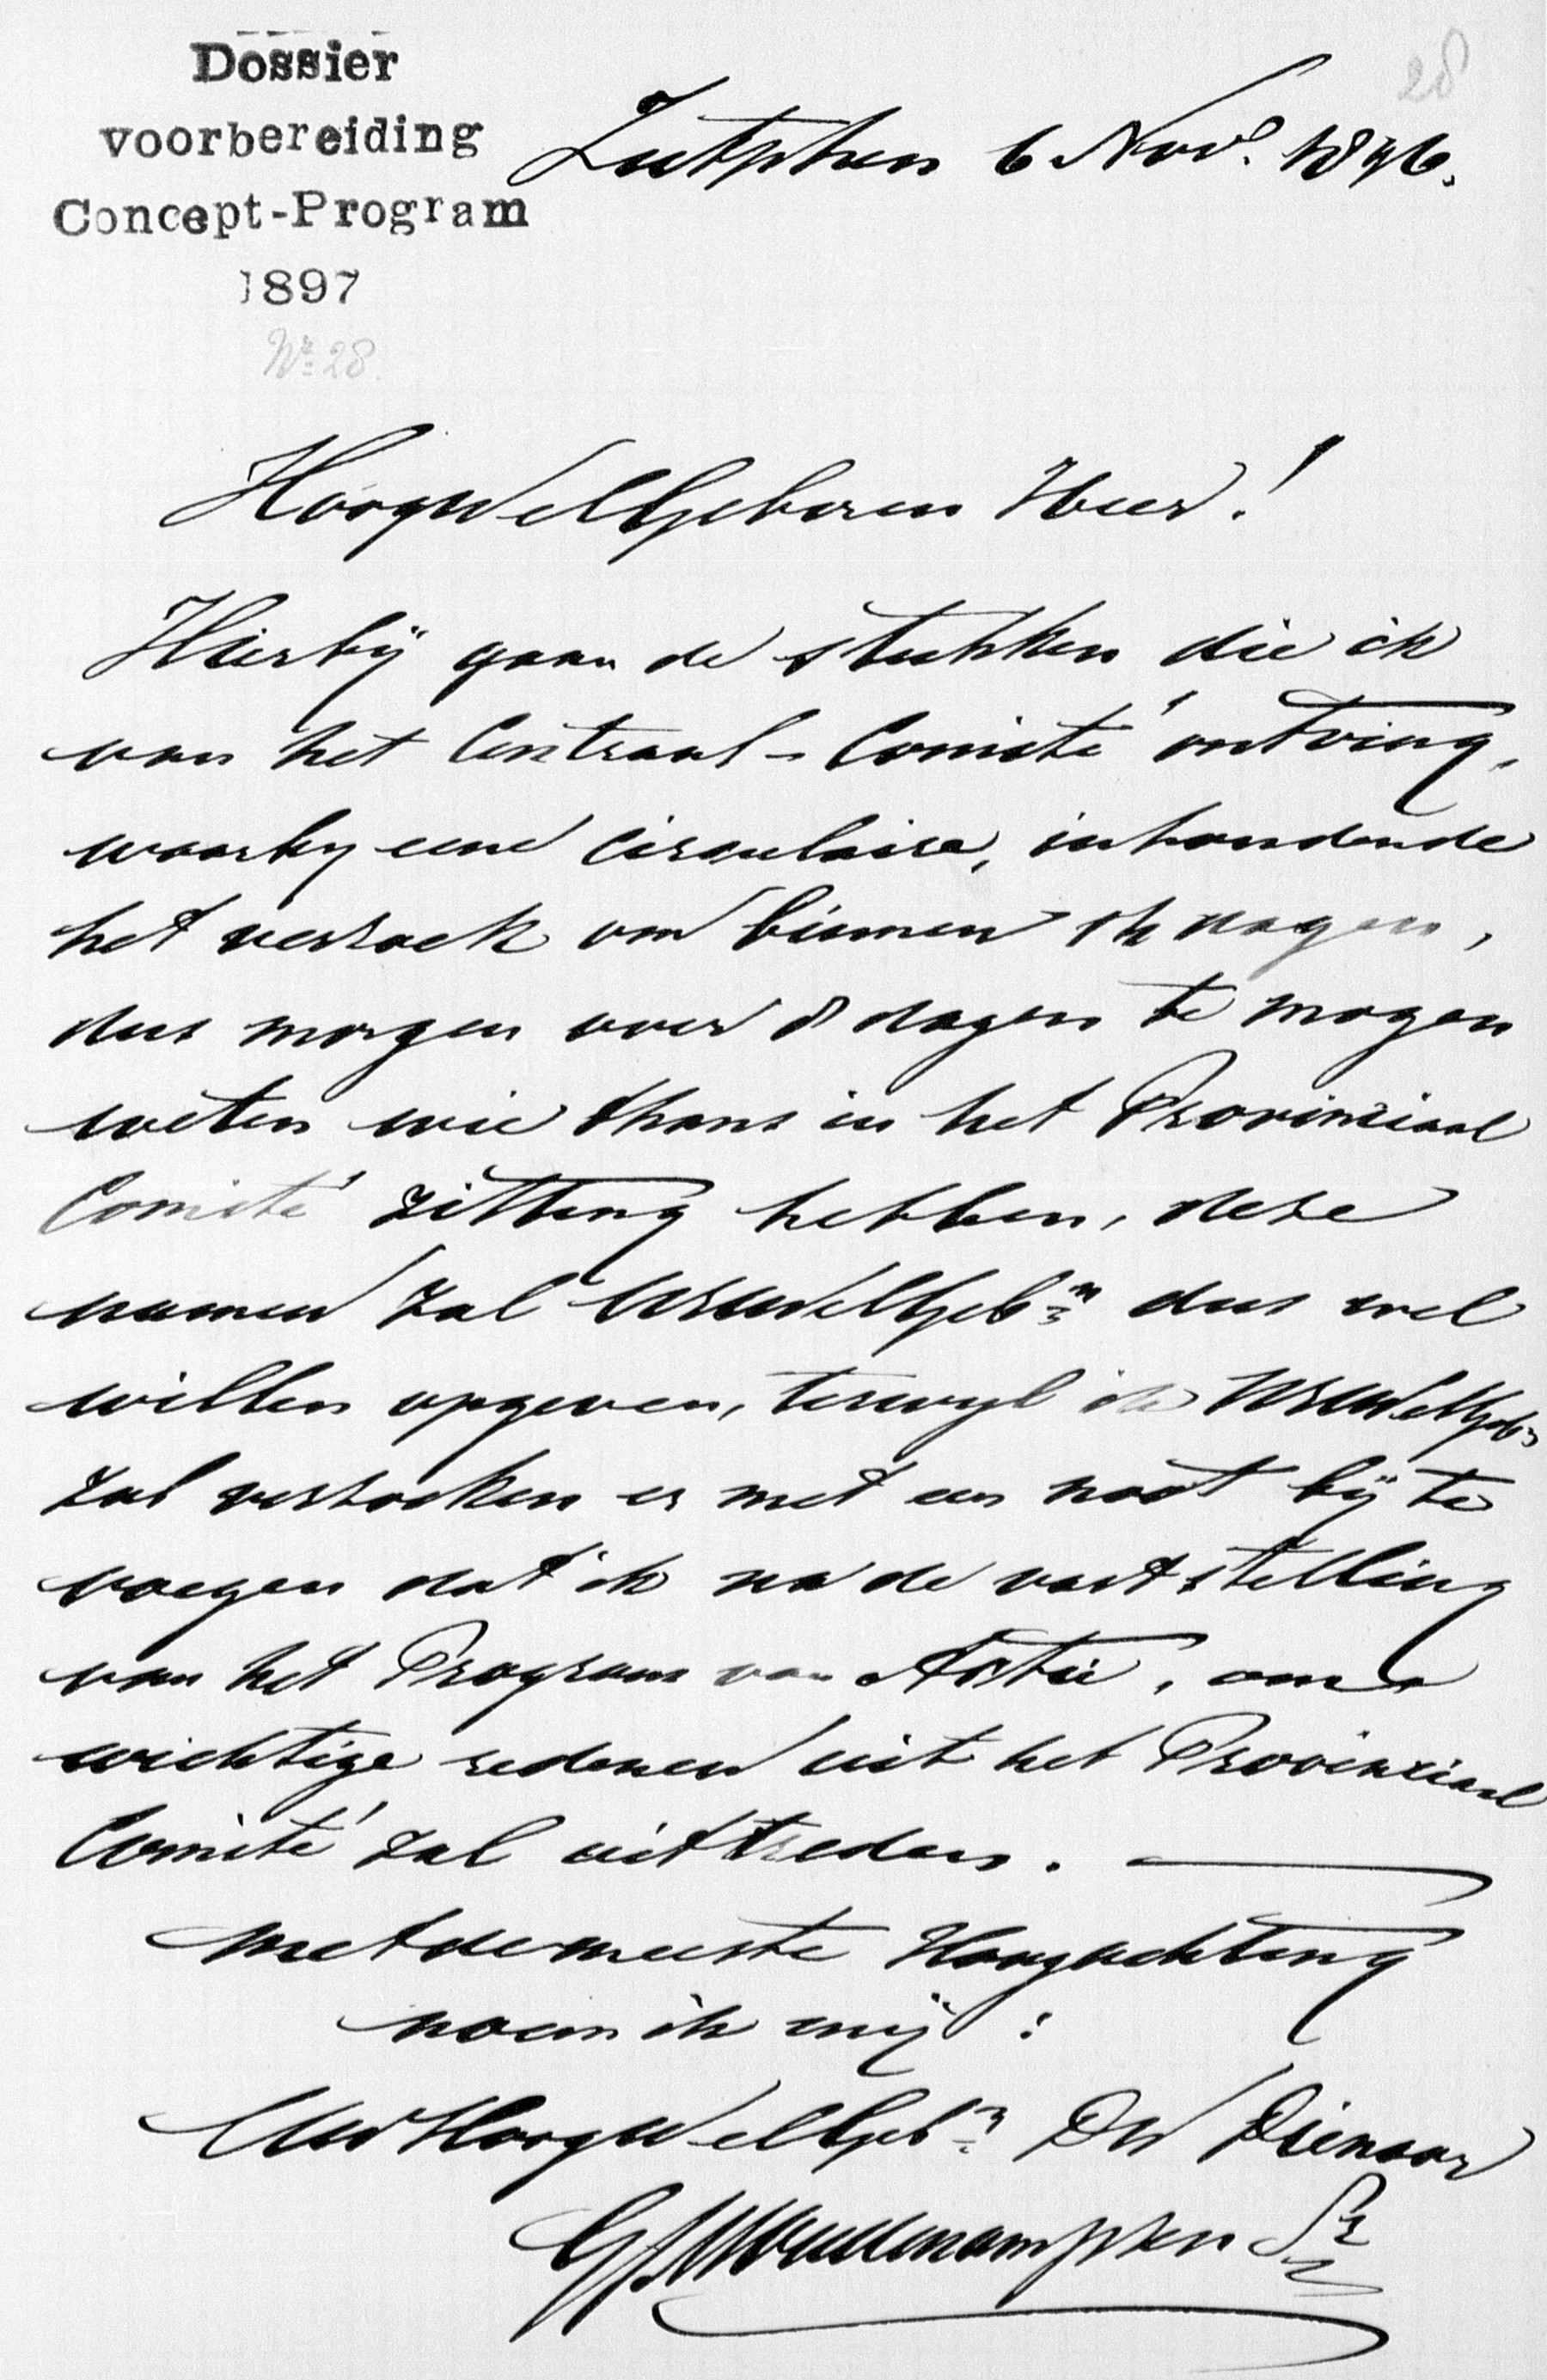 28
Dossier
voorbereiding
Concept-Program
1897
No 28.
Zutphen 6 Novr. 1896.
HoogWelGeboren Heer!
Hierbij gaan de stukken die ik
van het Centraal-Comité ontving,
waarby eene circulaire, inhoudende
het verzoek om binnen 14 dagen,
dus morgen over 8 dagen te mogen
weten wie thans in het Provinciaal
Comité zitting hebben, deze
namen zal UHWelGebn dus wel
willen opgeven, terwyl ik UHWelGebn
zal verzoeken er met een noot bij te
voegen dat ik na de vaststelling
van het Program van Actie, om
wichtige redenen uit het Provinciaal
Comité zal uittreden.
Met de meeste Hoogachting
noem ik mij:
Uw HoogWelGebn Dw Dienaar